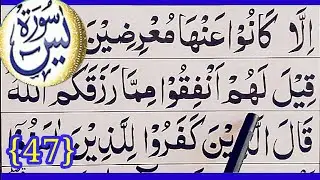 سورة
يس
إِلَّا كَانُوا عَنْهَا مُعْرِضِيْنَ
قِيْلَ لَهُمْ اَنْفِقُوْا مِمَّا رَزَقَكُمُ اللّٰهُ
قَالَ الَّذِيْنَ كَفَرُوْا لِلَّذِيْنَ اٰمَنُوْٓا
{47}